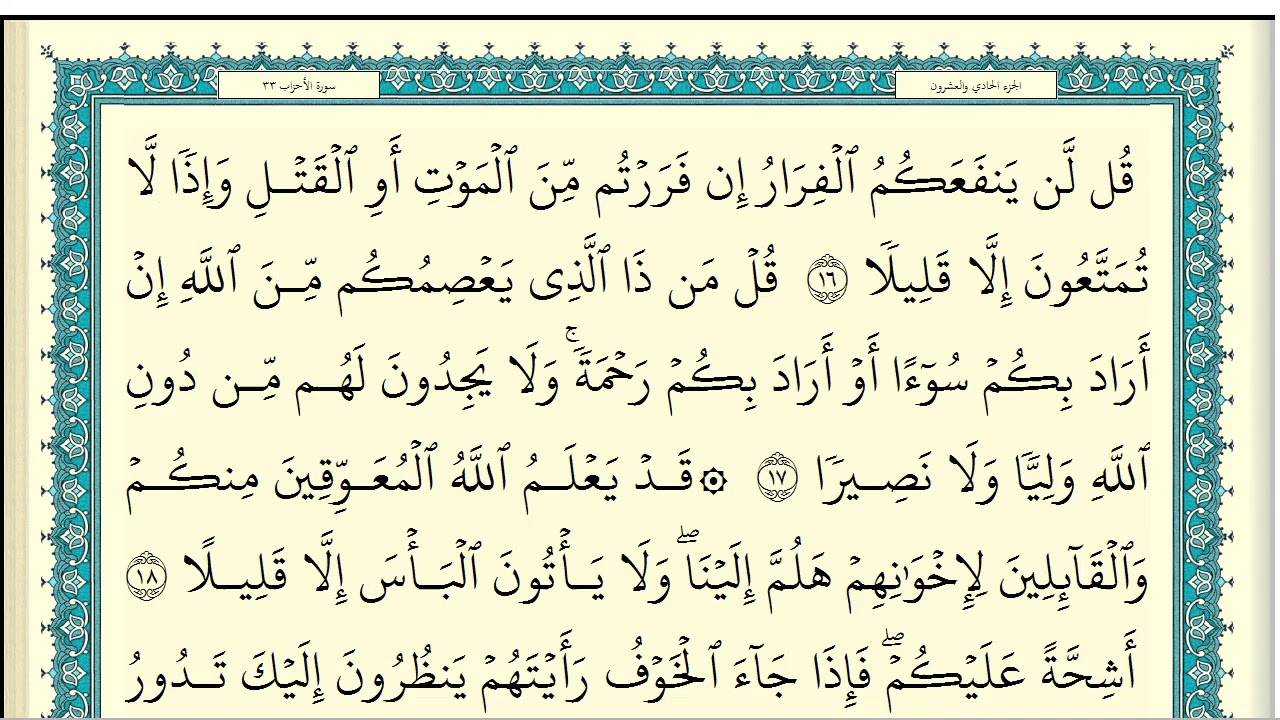 الجزء الحادي والعشرون
سورة الأحزاب ٣٣
قُل لَّن يَنفَعَكُمُ ٱلۡفِرَارُ إِن فَرَرۡتُم مِّنَ ٱلۡمَوۡتِ أَوِ ٱلۡقَتۡلِ وَإِذٗا لَّا
تُمَتَّعُونَ إِلَّا قَلِيلٗا ١٦ قُلۡ مَن ذَا ٱلَّذِي يَعۡصِمُكُم مِّنَ ٱللَّهِ إِنۡ
أَرَادَ بِكُمۡ سُوٓءًا أَوۡ أَرَادَ بِكُمۡ رَحۡمَةٗۚ وَلَا يَجِدُونَ لَهُم مِّن دُونِ
ٱللَّهِ وَلِيّٗا وَلَا نَصِيرٗا ١٧ ۞ قَدۡ يَعۡلَمُ ٱللَّهُ ٱلۡمُعَوِّقِينَ مِنكُمۡ
وَٱلۡقَآئِلِينَ لِإِخۡوَٰنِهِمۡ هَلُمَّ إِلَيۡنَاۖ وَلَا يَأۡتُونَ ٱلۡبَأۡسَ إِلَّا قَلِيلًا ١٨
أَشِحَّةً عَلَيۡكُمۡۖ فَإِذَا جَآءَ ٱلۡخَوۡفُ رَأَيۡتَهُمۡ يَنظُرُونَ إِلَيۡكَ تَدُورُ